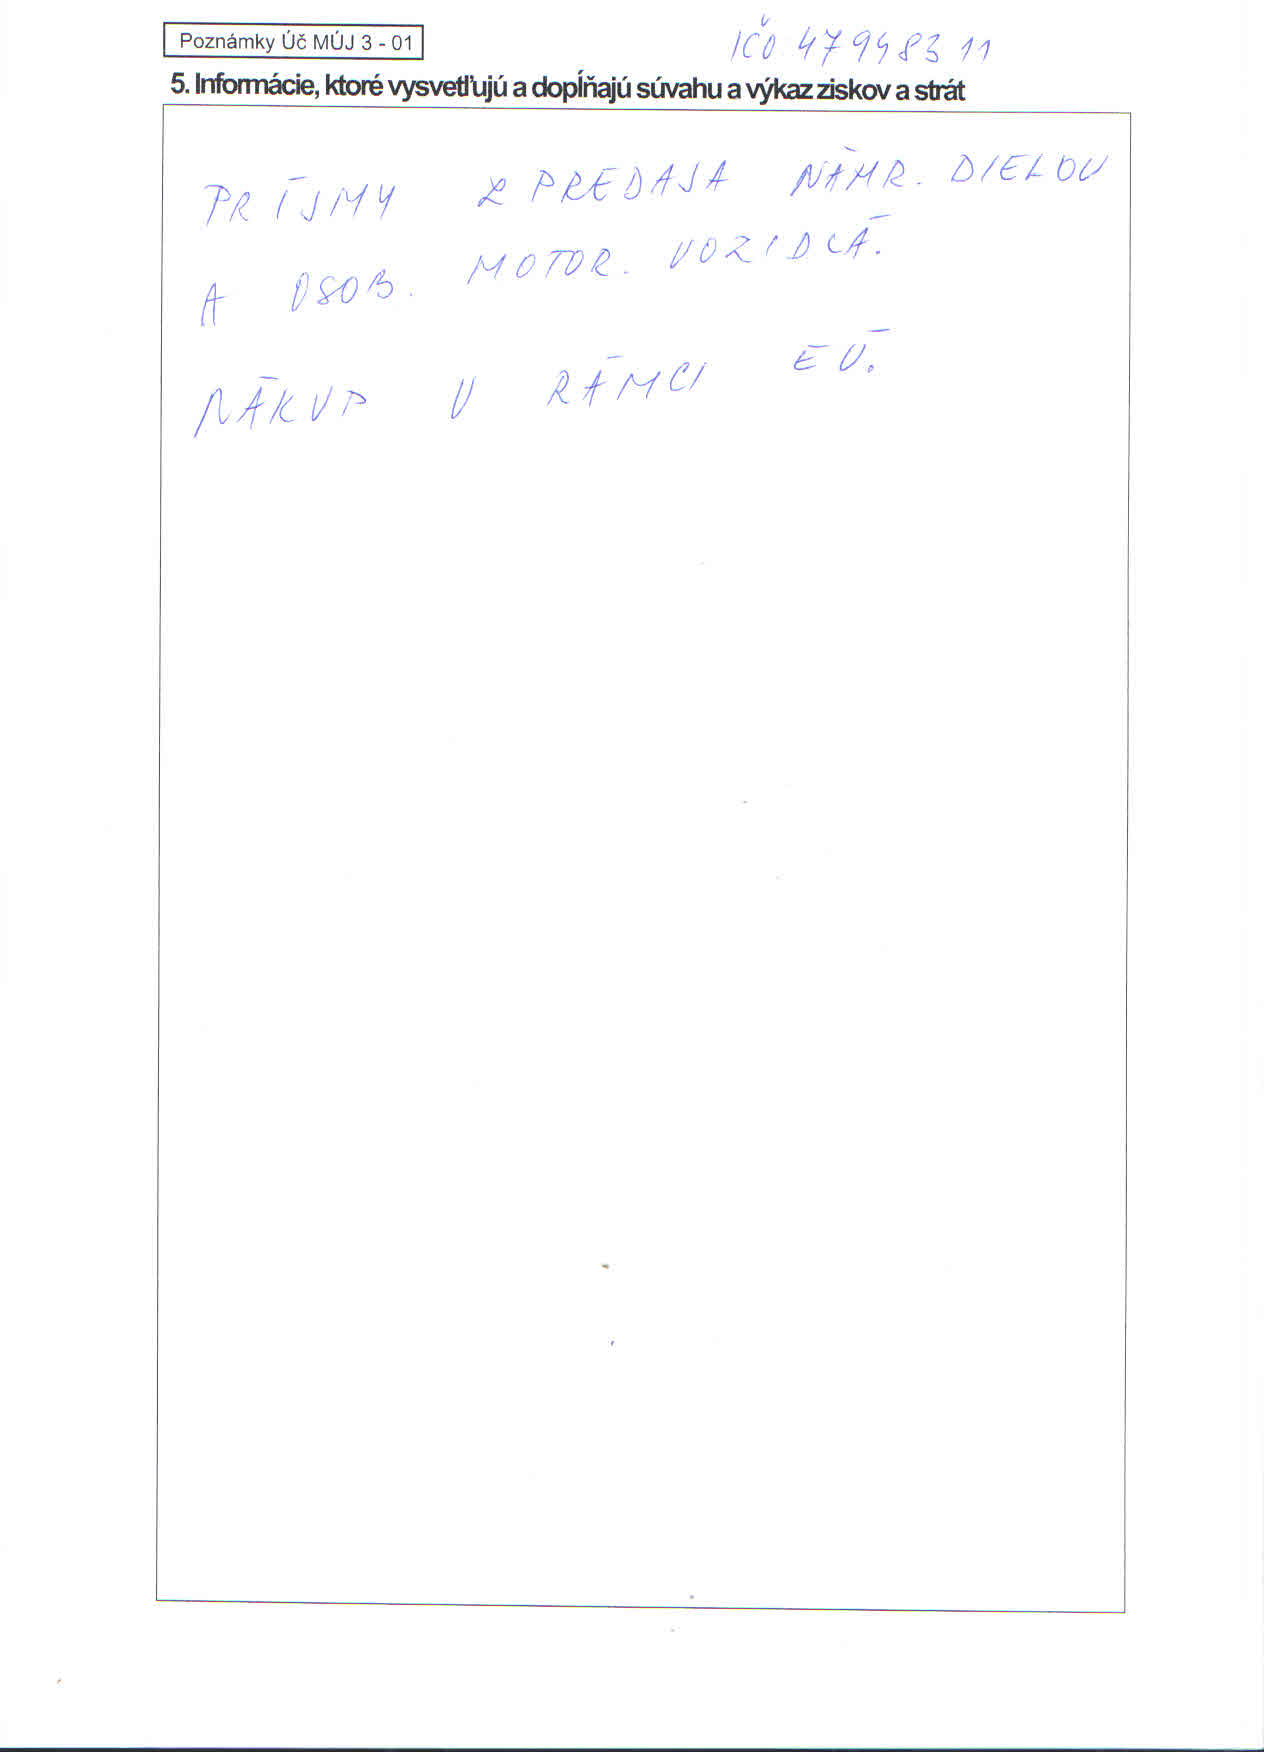 Poznámky Úč MÚJ 3 - 01
IČO 47948311
5. Informácie, ktoré vysvetľujú a dopĺňajú súvahu a výkaz ziskov a strát
PRÍJMY Z PREDAJA NÁHR. DIELOV
A OSOB. MOTOR. VOZIDLÁ.
NÁKUP V RÁMCI EÚ.